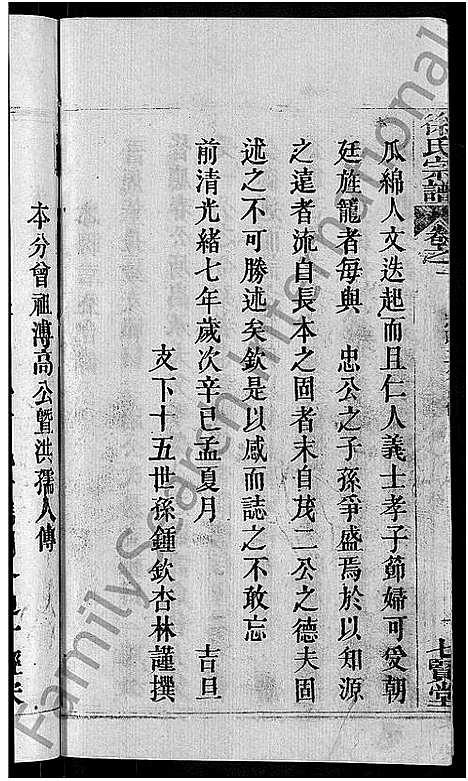 徐氏宗譜
卷之
七賢堂
瓜綿人文迭起而且仁人義士孝子節婦可受朝
廷旌寵者每與 忠公之子孫爭盛焉於以知源
之遠者流自長本之固者末自茂二公之德夫固
述之不可勝述矣欽是以感而誌之不敢忘
前清光緒七年歲次辛巳孟夏月 吉旦
支下十五世孫鍾欽杏林謹撰
本分曾祖溥高公暨洪孺人傳
FamilySearch International